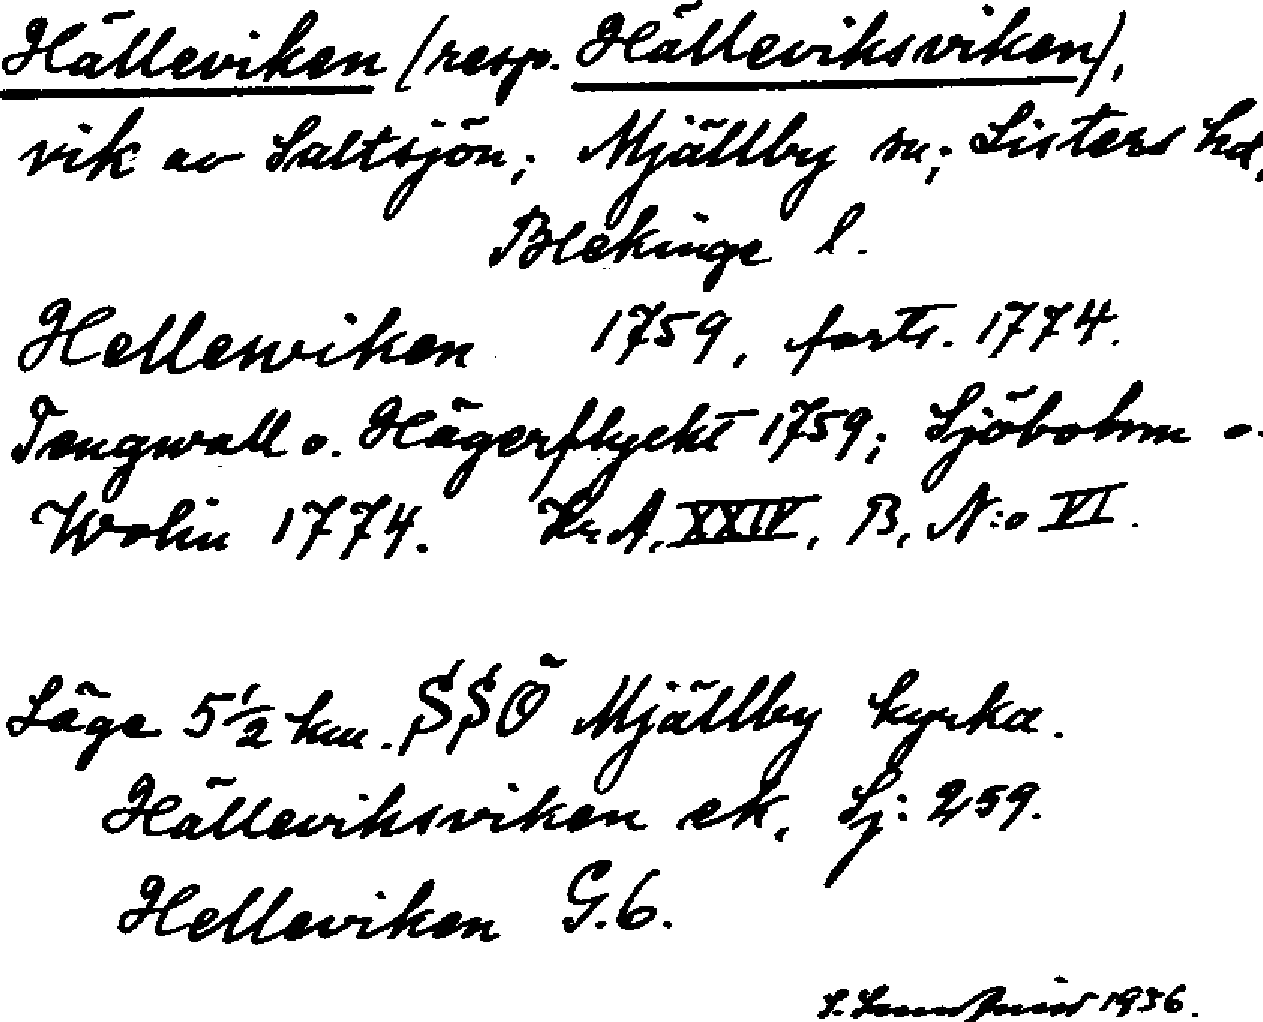 Hälleviken (resp. Hälleviksviken),
vik av Saltsjön; Mjällby sn; Listers hd,
Blekinge l.
Hellewiken 1759, forts. 1774.
Tengwall o. Hägerflycht 1759; Sjöbohm o.
Wolin 1774. Kr. A. XXIV, B, N:o VI.
Läge 5 1/2 km. SSÖ Mjällby kyrka.
Hälleviksviken ek. Sj: 259.
Helleviken G.6.
S. 1936.